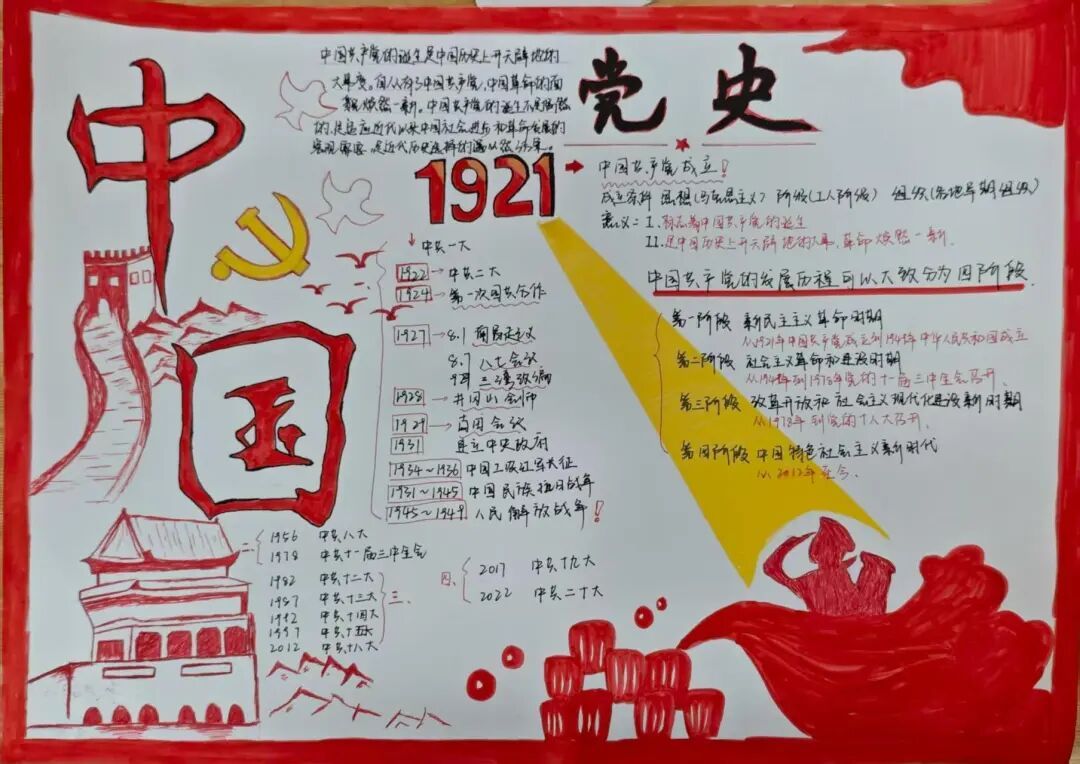 中国
党史
中国共产党的诞生是中国历史上开天辟地的
大事变。自从有了中国共产党,中国革命的面
貌焕然一新。中国共产党的诞生不是偶然
的,是适应近代以来中国社会进步和革命发展的
客观需要,是近代历史选择的必然结果。
1921
中国共产党成立!
成立条件 思想(马克思主义) 阶级(工人阶级) 组织(各地早期组织)
意义: I. 标志着中国共产党的诞生
II.是中国历史上开天辟地的大事,革命焕然一新.
中国共产党的发展历程可以大致分为四阶段
第一阶段 新民主主义革命时期
从1921年中国共产党成立到1949年中华人民共和国成立
第二阶段 社会主义革命和建设时期
从1949年到1978年党的十一届三中全会召开.
第三阶段 改革开放和社会主义现代化建设新时期
从1978年到党的十八大召开.
第四阶段 中国特色社会主义新时代
从2012年至今.
中共一大
1922 中共二大
1924 第一次国共合作
1927 8.1 南昌起义
8.7 八七会议
9月 三湾改编
1928 井冈山会师
1929 古田会议
1931 建立中央政府
1934~1936 中国工农红军长征
1931~1945 中国民族抗日战争
1945~1949 人民解放战争!
二
1956 中共八大
1978 中共十一届三中全会
1982 中共十二大
1987 中共十三大
三、
1992 中共十四大
1997 中共十五大
2012 中共十八大
四、
2017 中共十九大
2022 中共二十大